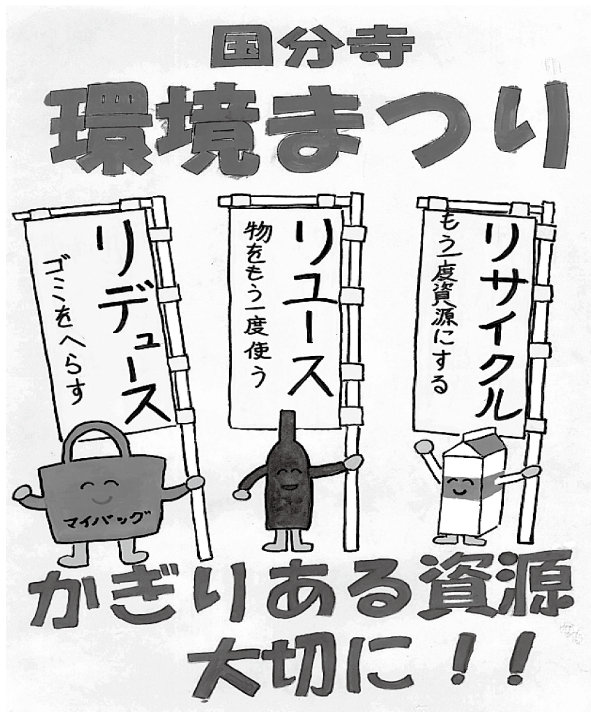 国分寺
環境まつり
リデュース
ゴミをへらす
リユース
物をもう一度使う
リサイクル
もう一度資源にする
マイバッグ
かぎりある資源
大切に!!